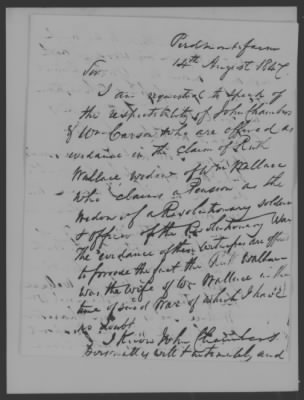 Piedmont farm
14th August 1847
Sir
I am requested to speak of
the respectability of John Chambers
& Wm Carson who are offered as
evidence in the claim of Ruth
Wallace widow of Wm Wallace
who claims a Pension as the
Widow of a Revolutionary soldier
& officer of the Revolutionary War
The evidance of these witnesses are offered
to prove the fact the Ruth Wallace
was the Wife of Wm Wallace in the
time of said War of which I have
no doubt
I know John Chambers
personally well & intimately and